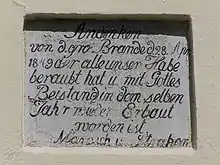 Andenken
von d. gro. Brande d 28. Apr.
1849 der alle unser Habe
beraubt hat u mit Gottes
Beistand in dem selben
Jahr wieder Erbaut
worden ist